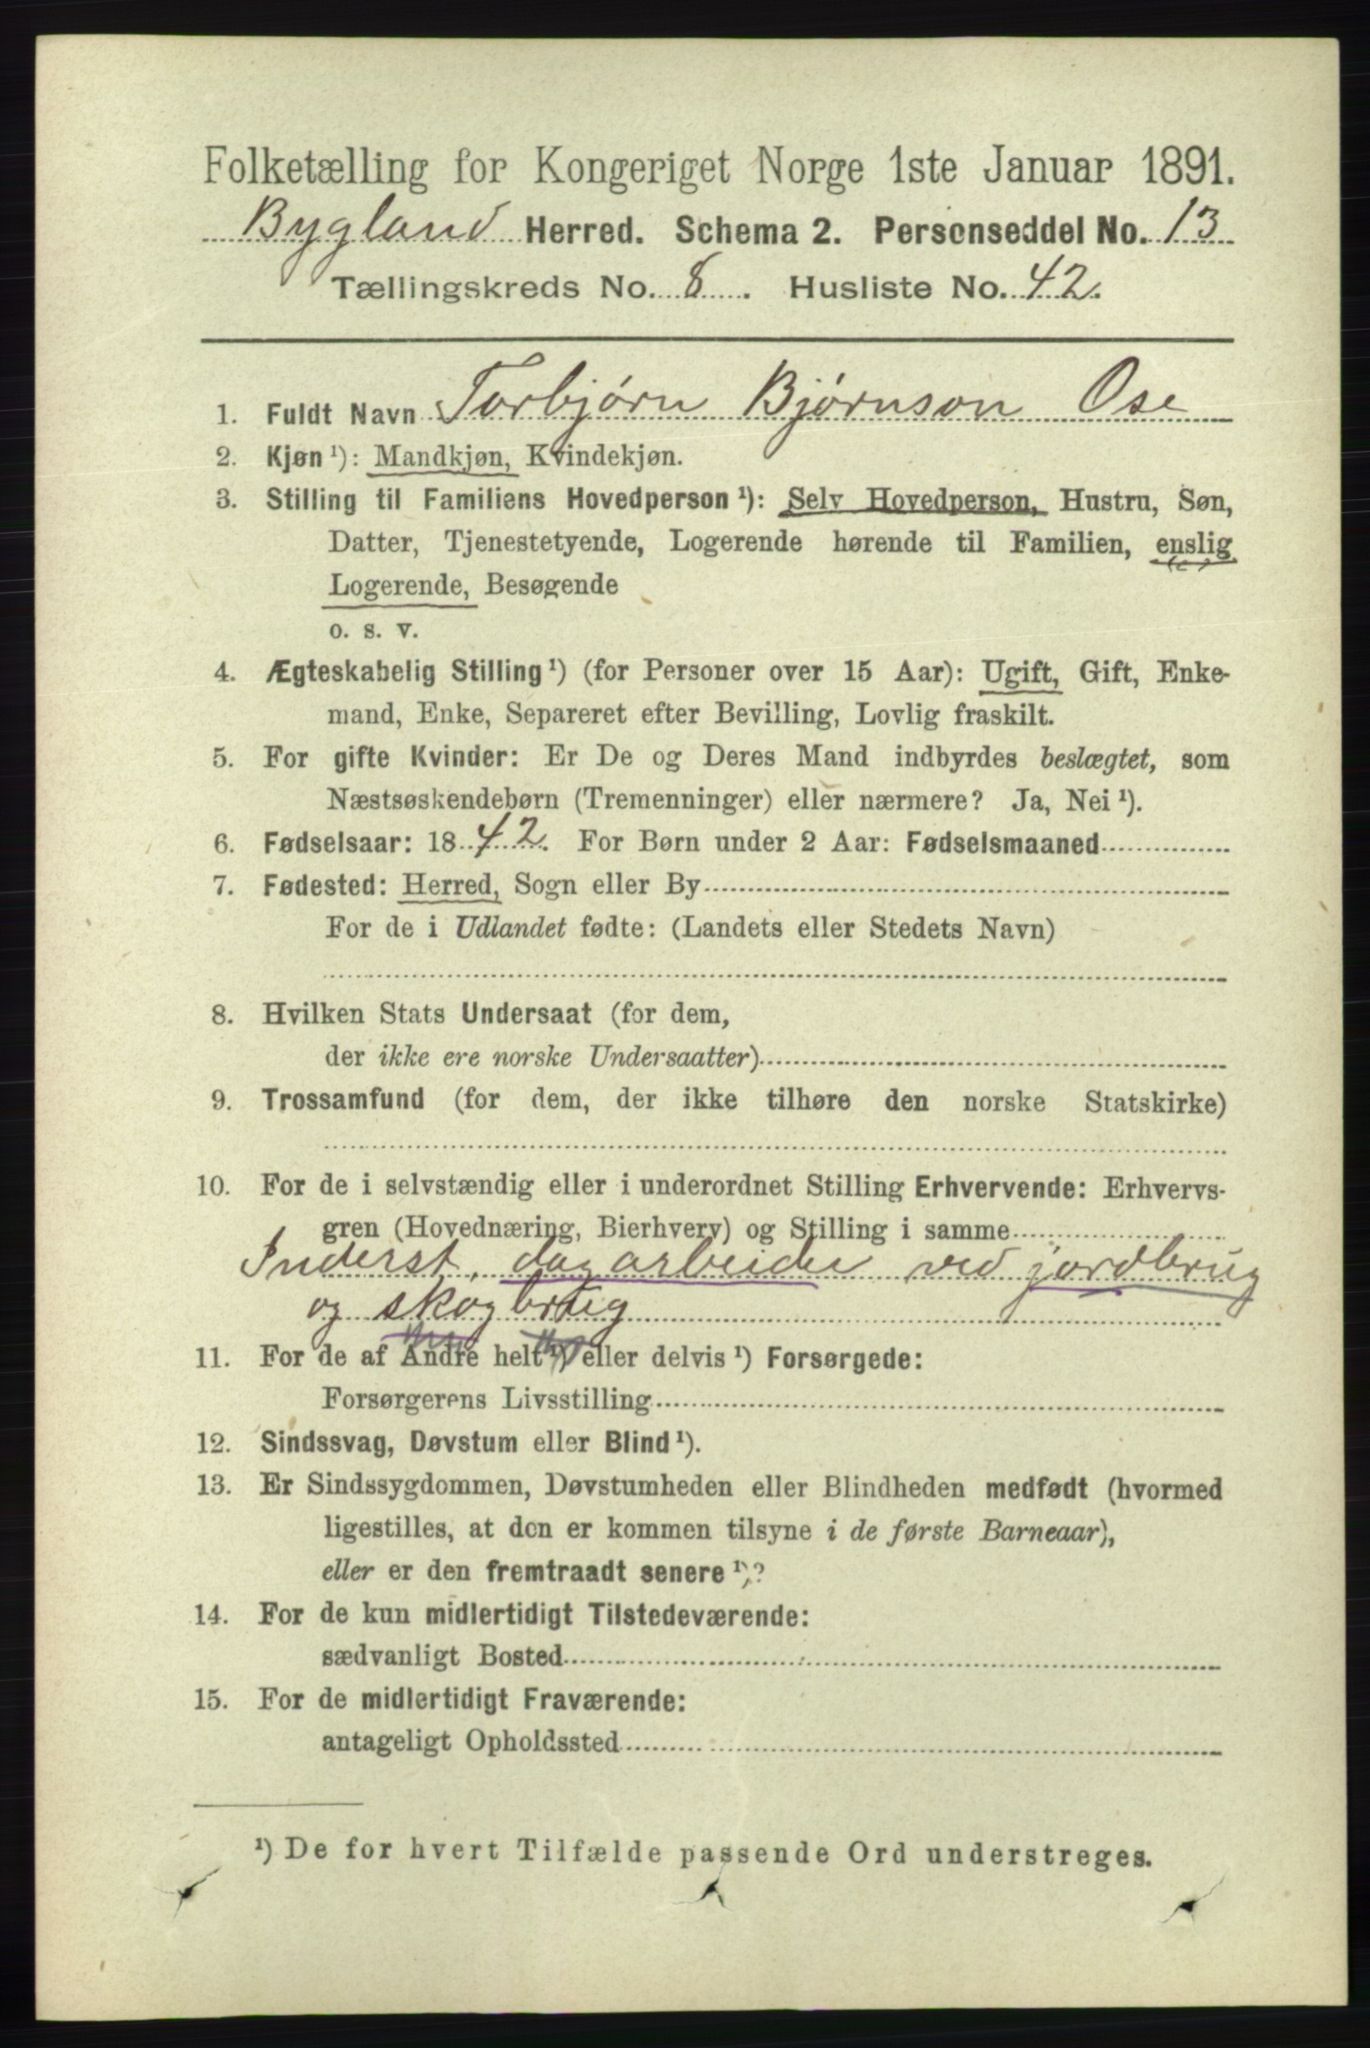 Folketælling for Kongeriget Norge 1ste Januar 1891.
Bygland Herred. Schema 2. Personseddel No. 13
Tællingskreds No. 8. Husliste No. 42.
1. Fuldt Navn Torbjørn Bjørnson Ose
2. Kjøn ¹): Mandkjøn, Kvindekjøn.
3. Stilling til Familiens Hovedperson ¹): Selv Hovedperson, Hustru, Søn,
Datter, Tjenestetyende, Logerende hørende til Familien, enslig
Logerende, Besøgende
o. s. v.
4. Ægteskabelig Stilling ¹) (for Personer over 15 Aar): Ugift, Gift, Enke-
mand, Enke, Separeret efter Bevilling, Lovlig fraskilt.
5. For gifte Kvinder: Er De og Deres Mand indbyrdes beslægtet, som
Næstsøskendebørn (Tremenninger) eller nærmere? Ja, Nei ¹).
6. Fødselsaar: 1842. For Børn under 2 Aar: Fødselsmaaned
7. Fødested: Herred, Sogn eller By
For de i Udlandet fødte: (Landets eller Stedets Navn)
8. Hvilken Stats Undersaat (for dem,
der ikke ere norske Undersaatter)
9. Trossamfund (for dem, der ikke tilhøre den norske Statskirke)
10. For de i selvstændig eller i underordnet Stilling Erhvervende: Erhvervs-
gren (Hovednæring, Bierhverv) og Stilling i samme
Inderst, dagarbeider ved jordbrug
og skogbrug
11. For de af Andre helt ¹) eller delvis ¹) Forsørgede:
Forsørgerens Livsstilling
12. Sindssvag, Døvstum eller Blind ¹).
13. Er Sindssygdommen, Døvstumheden eller Blindheden medfødt (hvormed
ligestilles, at den er kommen tilsyne i de første Barneaar),
eller er den fremtraadt senere ¹)?
14. For de kun midlertidigt Tilstedeværende:
sædvanligt Bosted
15. For de midlertidigt Fraværende:
antageligt Opholdssted
¹) De for hvert Tilfælde passende Ord understreges.